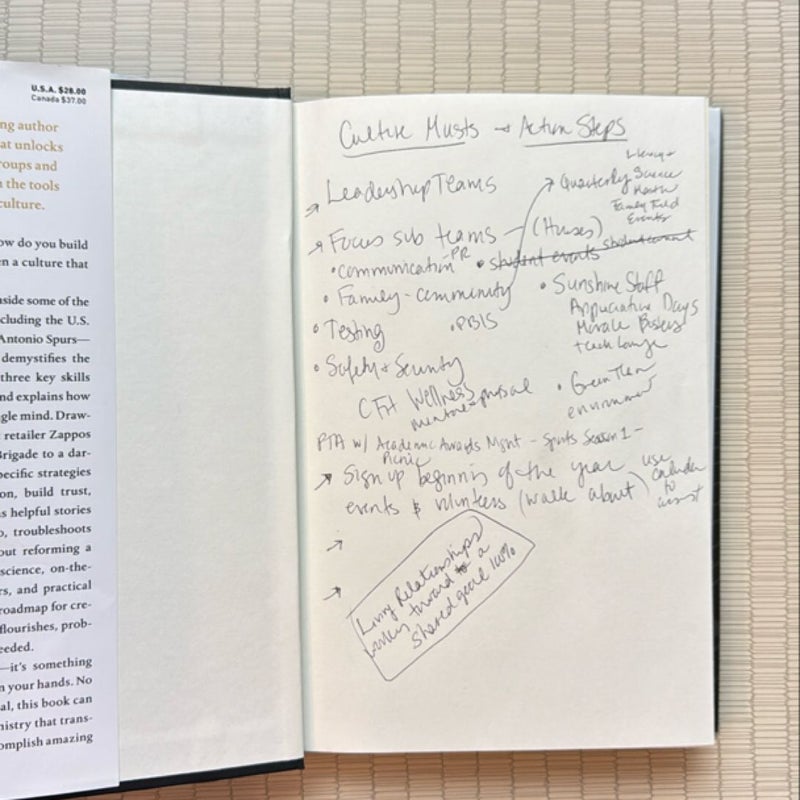 U.S.A. $28.00
Canada $37.00
ng author
at unlocks
roups and
n the tools
culture.
ow do you build
en a culture that
nside some of the
cluding the U.S.
Antonio Spurs—
demystifies the
three key skills
nd explains how
gle mind. Draw-
retailer Zappos
Brigade to a dar-
pecific strategies
on, build trust,
s helpful stories
o, troubleshoots
out reforming a
science, on-the-
rs, and practical
roadmap for cre-
flourishes, prob-
eeded.
—it's something
n your hands. No
al, this book can
mistry that trans-
omplish amazing
Culture Musts → Action Steps
→ Leadership Teams
→ Quarterly Science
Math
Family Field
Events
→ Focus sub teams – (Houses)
• Communication – PR
• student events
• Family - community
• Sunshine Staff
Appreciation Days
Morale Busters
• Testing
• PBIS
• Safety + Security
CFA Wellness
• Green Team
environment
PTA w/ Academic Awards Mgmt – Sports Season 1 –
Picnic
→ Sign up beginning of the year
events & volunteers (walk about)
use
calendar
to
assist
→
→
Living Relationships
toward a
shared goal 100%